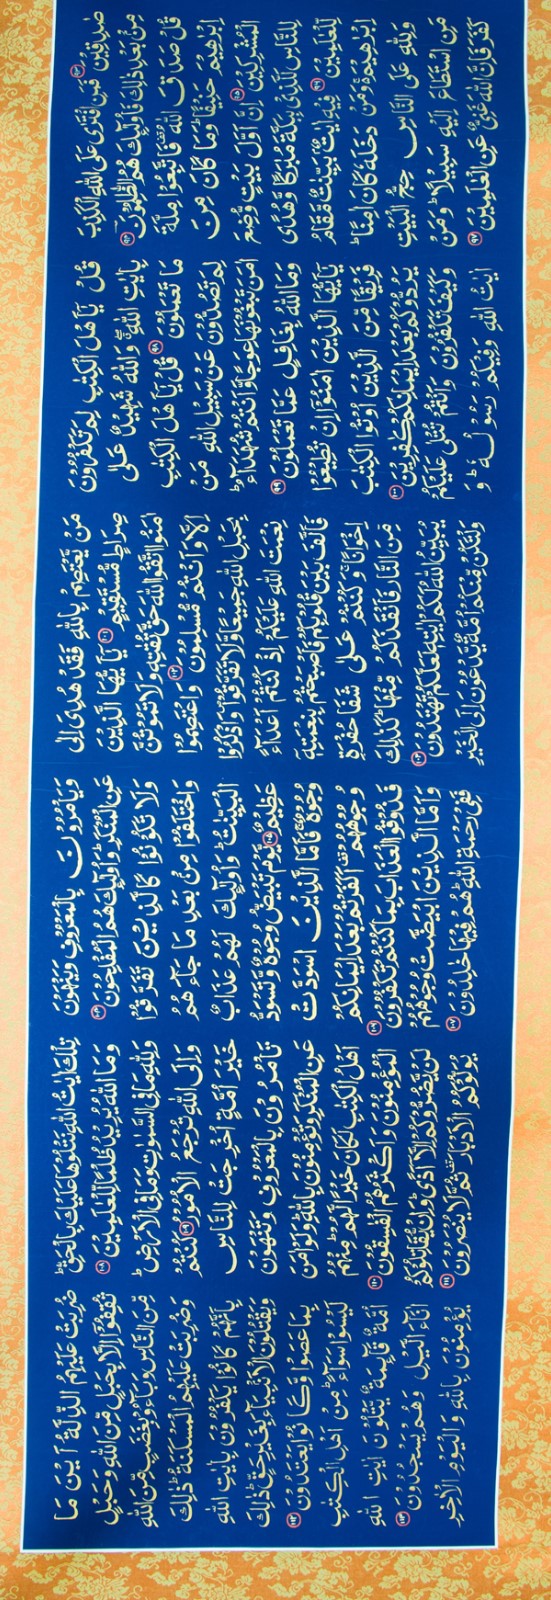 صٰدِقِيْنَ ﴿۹۳﴾ فَمَنِ افْتَرٰى عَلَى اللّٰهِ الْكَذِبَ
مِنْۢ بَعْدِ ذٰلِكَ فَاُولٰٓئِكَ هُمُ الظّٰلِمُوْنَ ﴿۹۴﴾
قُلْ صَدَقَ اللّٰهُ فَاتَّبِعُوْا مِلَّةَ
اِبْرٰهِيْمَ حَنِيْفًا وَمَا كَانَ مِنَ
الْمُشْرِكِيْنَ ﴿۹۵﴾ اِنَّ اَوَّلَ بَيْتٍ وُّضِعَ
لِلنَّاسِ لَلَّذِيْ بِبَكَّةَ مُبٰرَكًا وَّهُدًى
لِّلْعٰلَمِيْنَ ﴿۹۶﴾ فِيْهِ اٰيٰتٌۢ بَيِّنٰتٌ مَّقَامُ
اِبْرٰهِيْمَ وَمَنْ دَخَلَهٗ كَانَ اٰمِنًا
وَلِلّٰهِ عَلَى النَّاسِ حِجُّ الْبَيْتِ
مَنِ اسْتَطَاعَ اِلَيْهِ سَبِيْلًا وَمَنْ
كَفَرَ فَاِنَّ اللّٰهَ غَنِيٌّ عَنِ الْعٰلَمِيْنَ ﴿۹۷﴾
قُلْ يٰٓاَهْلَ الْكِتٰبِ لِمَ تَكْفُرُوْنَ
بِاٰيٰتِ اللّٰهِ وَاللّٰهُ شَهِيْدٌ عَلٰى
مَا تَعْمَلُوْنَ ﴿۹۸﴾ قُلْ يٰٓاَهْلَ الْكِتٰبِ
لِمَ تَصُدُّوْنَ عَنْ سَبِيْلِ اللّٰهِ مَنْ
اٰمَنَ تَبْغُوْنَهَا عِوَجًا وَّاَنْتُمْ شُهَدَآءُ
وَمَا اللّٰهُ بِغَافِلٍ عَمَّا تَعْمَلُوْنَ ﴿۹۹﴾
يٰٓاَيُّهَا الَّذِيْنَ اٰمَنُوْٓا اِنْ تُطِيْعُوْا
فَرِيْقًا مِّنَ الَّذِيْنَ اُوْتُوا الْكِتٰبَ
يَرُدُّوْكُمْ بَعْدَ اِيْمَانِكُمْ كٰفِرِيْنَ ﴿۱۰۰﴾
وَكَيْفَ تَكْفُرُوْنَ وَاَنْتُمْ تُتْلٰى عَلَيْكُمْ
اٰيٰتُ اللّٰهِ وَفِيْكُمْ رَسُوْلُهٗ وَ
مَنْ يَّعْتَصِمْ بِاللّٰهِ فَقَدْ هُدِيَ اِلٰى
صِرَاطٍ مُّسْتَقِيْمٍ ﴿۱۰۱﴾ يٰٓاَيُّهَا الَّذِيْنَ
اٰمَنُوا اتَّقُوا اللّٰهَ حَقَّ تُقٰتِهٖ وَلَا تَمُوْتُنَّ
اِلَّا وَاَنْتُمْ مُّسْلِمُوْنَ ﴿۱۰۲﴾ وَاعْتَصِمُوْا
بِحَبْلِ اللّٰهِ جَمِيْعًا وَّلَا تَفَرَّقُوْا وَاذْكُرُوْا
نِعْمَتَ اللّٰهِ عَلَيْكُمْ اِذْ كُنْتُمْ اَعْدَآءً
فَاَلَّفَ بَيْنَ قُلُوْبِكُمْ فَاَصْبَحْتُمْ بِنِعْمَتِهٖٓ
اِخْوَانًا وَكُنْتُمْ عَلٰى شَفَا حُفْرَةٍ
مِّنَ النَّارِ فَاَنْقَذَكُمْ مِّنْهَا كَذٰلِكَ
يُبَيِّنُ اللّٰهُ لَكُمْ اٰيٰتِهٖ لَعَلَّكُمْ تَهْتَدُوْنَ ﴿۱۰۳﴾
وَلْتَكُنْ مِّنْكُمْ اُمَّةٌ يَّدْعُوْنَ اِلَى الْخَيْرِ
وَيَاْمُرُوْنَ بِالْمَعْرُوْفِ وَيَنْهَوْنَ
عَنِ الْمُنْكَرِ وَاُولٰٓئِكَ هُمُ الْمُفْلِحُوْنَ ﴿۱۰۴﴾
وَلَا تَكُوْنُوْا كَالَّذِيْنَ تَفَرَّقُوْا
وَاخْتَلَفُوْا مِنْۢ بَعْدِ مَا جَآءَهُمُ
الْبَيِّنٰتُ وَاُولٰٓئِكَ لَهُمْ عَذَابٌ
عَظِيْمٌ ﴿۱۰۵﴾ يَّوْمَ تَبْيَضُّ وُجُوْهٌ وَّتَسْوَدُّ
وُجُوْهٌ فَاَمَّا الَّذِيْنَ اسْوَدَّتْ
وُجُوْهُهُمْ اَكَفَرْتُمْ بَعْدَ اِيْمَانِكُمْ
فَذُوْقُوا الْعَذَابَ بِمَا كُنْتُمْ تَكْفُرُوْنَ ﴿۱۰۶﴾
وَاَمَّا الَّذِيْنَ ابْيَضَّتْ وُجُوْهُهُمْ
فَفِيْ رَحْمَةِ اللّٰهِ هُمْ فِيْهَا خٰلِدُوْنَ ﴿۱۰۷﴾
تِلْكَ اٰيٰتُ اللّٰهِ نَتْلُوْهَا عَلَيْكَ بِالْحَقِّ
وَمَا اللّٰهُ يُرِيْدُ ظُلْمًا لِّلْعٰلَمِيْنَ ﴿۱۰۸﴾
وَلِلّٰهِ مَا فِي السَّمٰوٰتِ وَمَا فِي الْاَرْضِ
وَاِلَى اللّٰهِ تُرْجَعُ الْاُمُوْرُ ﴿۱۰۹﴾ كُنْتُمْ
خَيْرَ اُمَّةٍ اُخْرِجَتْ لِلنَّاسِ
تَاْمُرُوْنَ بِالْمَعْرُوْفِ وَتَنْهَوْنَ
عَنِ الْمُنْكَرِ وَتُؤْمِنُوْنَ بِاللّٰهِ وَلَوْ اٰمَنَ
اَهْلُ الْكِتٰبِ لَكَانَ خَيْرًا لَّهُمْ مِنْهُمُ
الْمُؤْمِنُوْنَ وَاَكْثَرُهُمُ الْفٰسِقُوْنَ ﴿۱۱۰﴾
لَنْ يَّضُرُّوْكُمْ اِلَّآ اَذًى وَاِنْ يُّقَاتِلُوْكُمْ
يُوَلُّوْكُمُ الْاَدْبَارَ ثُمَّ لَا يُنْصَرُوْنَ ﴿۱۱۱﴾
ضُرِبَتْ عَلَيْهِمُ الذِّلَّةُ اَيْنَ مَا
ثُقِفُوْٓا اِلَّا بِحَبْلٍ مِّنَ اللّٰهِ وَحَبْلٍ
مِّنَ النَّاسِ وَبَآءُوْ بِغَضَبٍ مِّنَ اللّٰهِ
وَضُرِبَتْ عَلَيْهِمُ الْمَسْكَنَةُ ذٰلِكَ
بِاَنَّهُمْ كَانُوْا يَكْفُرُوْنَ بِاٰيٰتِ اللّٰهِ
وَيَقْتُلُوْنَ الْاَنْۢبِيَآءَ بِغَيْرِ حَقٍّ ذٰلِكَ
بِمَا عَصَوْا وَّكَانُوْا يَعْتَدُوْنَ ﴿۱۱۲﴾
لَيْسُوْا سَوَآءً مِنْ اَهْلِ الْكِتٰبِ
اُمَّةٌ قَآئِمَةٌ يَّتْلُوْنَ اٰيٰتِ اللّٰهِ
اٰنَآءَ الَّيْلِ وَهُمْ يَسْجُدُوْنَ ﴿۱۱۳﴾
يُؤْمِنُوْنَ بِاللّٰهِ وَالْيَوْمِ الْاٰخِرِ